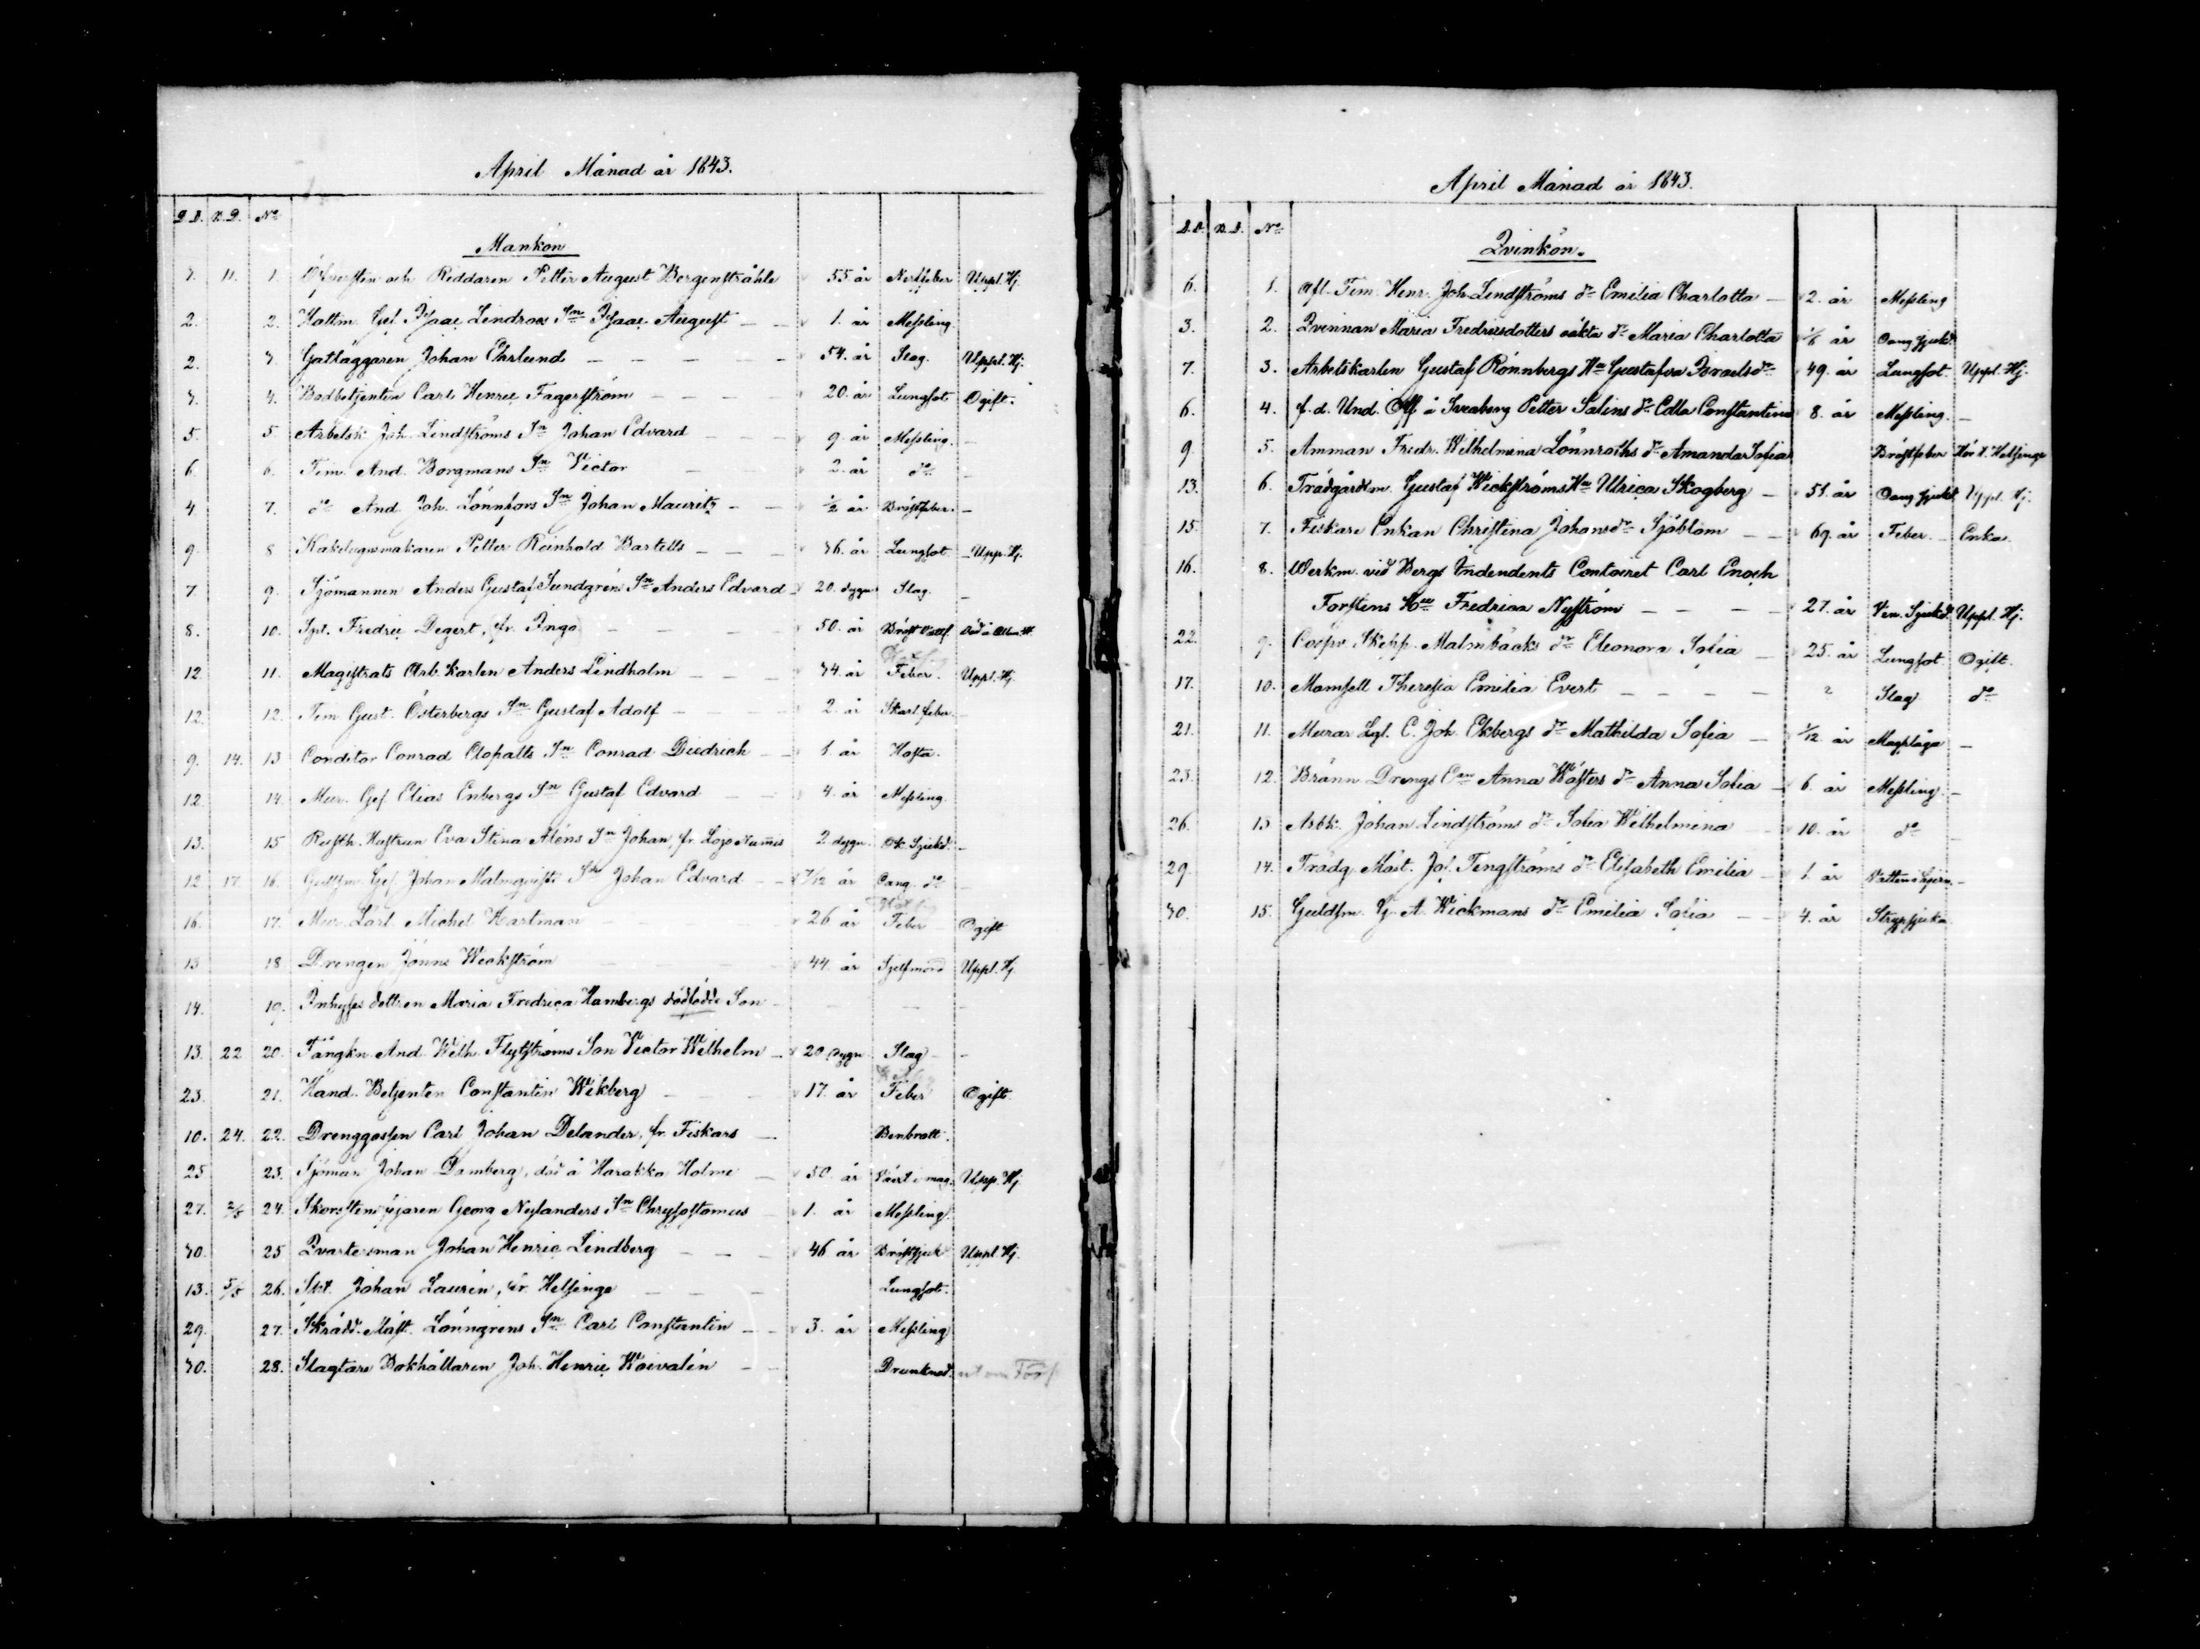 April Månad år 1843.
D.D. N.D. No
Mankön
3. 11. 1. Öfversten och Riddaren Petter August Bergenstråhle 55 år Nerffeber Uppl. Hj.
2. 2. Hattm. Gef. Isaac Lindroos Sn Isaac August 1. år Messling.
2. 3. Gatläggaren Johan Ehrlund 54. år Slag. Uppl. Hj.
3. 4. Bodbetjenten Carl Henric Fagerström 20. år Lungsot Ogift.
5. 5 Arbetsk. Joh. Lindströms Sn Johan Edvard 9. år Messling.
6 6. Tim. And. Borgmans Sn Victor 2. år do
4. 7. do And. Joh. Lönnfors Sn Johan Mauritz 1/2 år Bröstfeber.
9. 8 Kakelugnsmakaren Petter Reinhold Bartells 36. år Lungsot Upp. Hj.
7 9. Sjömannen Anders Gustaf Sundgrens Sn Anders Edvard 20. dygn Slag.
8. 10. Spl. Fredric Degert, fr. Ingo 50. år Bröst
12 11. Magistrats Arb. Karlen Anders Lindholm 34 år Feber. Uppl. Hj.
12. 12. Tim. Gust. Österbergs Sn Gustaf Adolf 2. år Skarl. feber
9. 14. 13 Conditor Conrad Clopatts Sn Conrad Diedrich 1 år Hosta.
12. 14. Mur. Gef. Elias Enbergs Sn Gustaf Edvard 4. år Messling.
13. 15 Rusth. Hustrun Eva Stina Aléns Sn Johan, fr. Lojo Nummis 2 dygn. Ok. Sjukd.
12 17 16. Guldsm. Gef. Johan Malmqvists Sn Johan Edvard 7/12 år Oang. do
16. 17. Mur. Lärl. Michel Hartman 26 år Feber Ogift
13 18 Drengen Jonns Weckström 44. år Sjelfmord Uppl. Hj.
14. 19. Inhyses dottren Maria Fredrica Hambergs dödfödde Son
13. 22 20. Fångkn. And. Wilh. Flytströms Son Victor Wilhelm 20 dygn Slag
23. 21. Hand. Betjenten Constantin Wikberg 17. år Feber Ogift.
10. 24. 22. Drenggossen Carl Johan Delander, fr. Fiskars Benbrott.
25 23. Sjöman Johan Damberg, död å Harakka Holme 50. år Värk i mag. Upp. Hj.
27. 2/5 24. Skorstensfejaren Georg Nylanders Sn Chrysostomus 1. år Messling.
30. 25 Qvartersman Johan Henric Lindberg 46 år Bröstsjuk Uppl. Hj.
13. 5/5 26. Skt. Johan Laurén, fr. Helsinge Lungsot.
29. 27. Skrädd. Mäst. Lönngrens Sn Carl Constantin 3. år Messling
30. 28. Slagtare Bokhållaren Joh. Henric Koivalén Drunknad. ut om Förs
April Månad år 1843.
D.D. N.D. No
Qvinkön.
6. 1. Afl. Tim. Henr. Joh. Lindströms dr Emilia Charlotta 2. år Messling
3. 2. Qvinnan Maria Fredricsdotters oäkta dr Maria Charlotta 1/6 år Oang. sjukd.
7. 3. Arbetskarlen Gustaf Rönnbergs Hu Gustafva Israelsdr 49. år Lungsot. Uppl. Hj.
6. 4. f.d. Und. Off. å Sveaborg Petter Salins dr Edla Constantina 8. år Messling.
9 5. Amman Fredr. Wilhelmina Lönnroths dr Amanda Sofia Bröstfeber Hör t. Helsinge
13. 6. Trädgårdsm. Gustaf Wickströms Hu Ulrica Skogberg 51. år Oang. sjukd. Uppl. Hj.
15. 7. Fiskare Enkan Christina Johansdr Sjöblom 69. år Feber. Enka.
16. 8. Werkm. vid Bergs Indendents Contoiret Carl Enoch
Forstens Hu Fredrica Nyström 27. år Ven. Sjukd. Uppl. Hj.
22. 9. Coopv. Skepp. Malmbäcks dr Eleonora Sofia 25. år Lungsot Ogift.
17. 10. Mamsell Theresia Emilia Evert ? Slag do
21. 11. Murar Lgl. C. Joh. Ekbergs dr Mathilda Sofia 1/12 år Magplåga
23. 12. Bränn. Drengs Ean Anna Wästers dr Anna Sofia 6. år Messling.
26. 13 Arbk. Johan Lindströms dr Sofia Wilhelmina 10. år do
29. 14. Trädg. Mäst. Jos. Tengströms dr Elisabeth Emilia 1. år Vatten i hjern.
30. 15. Guldsm. G. A. Wickmans dr Emilia Sofia 4. år Strypsjuka